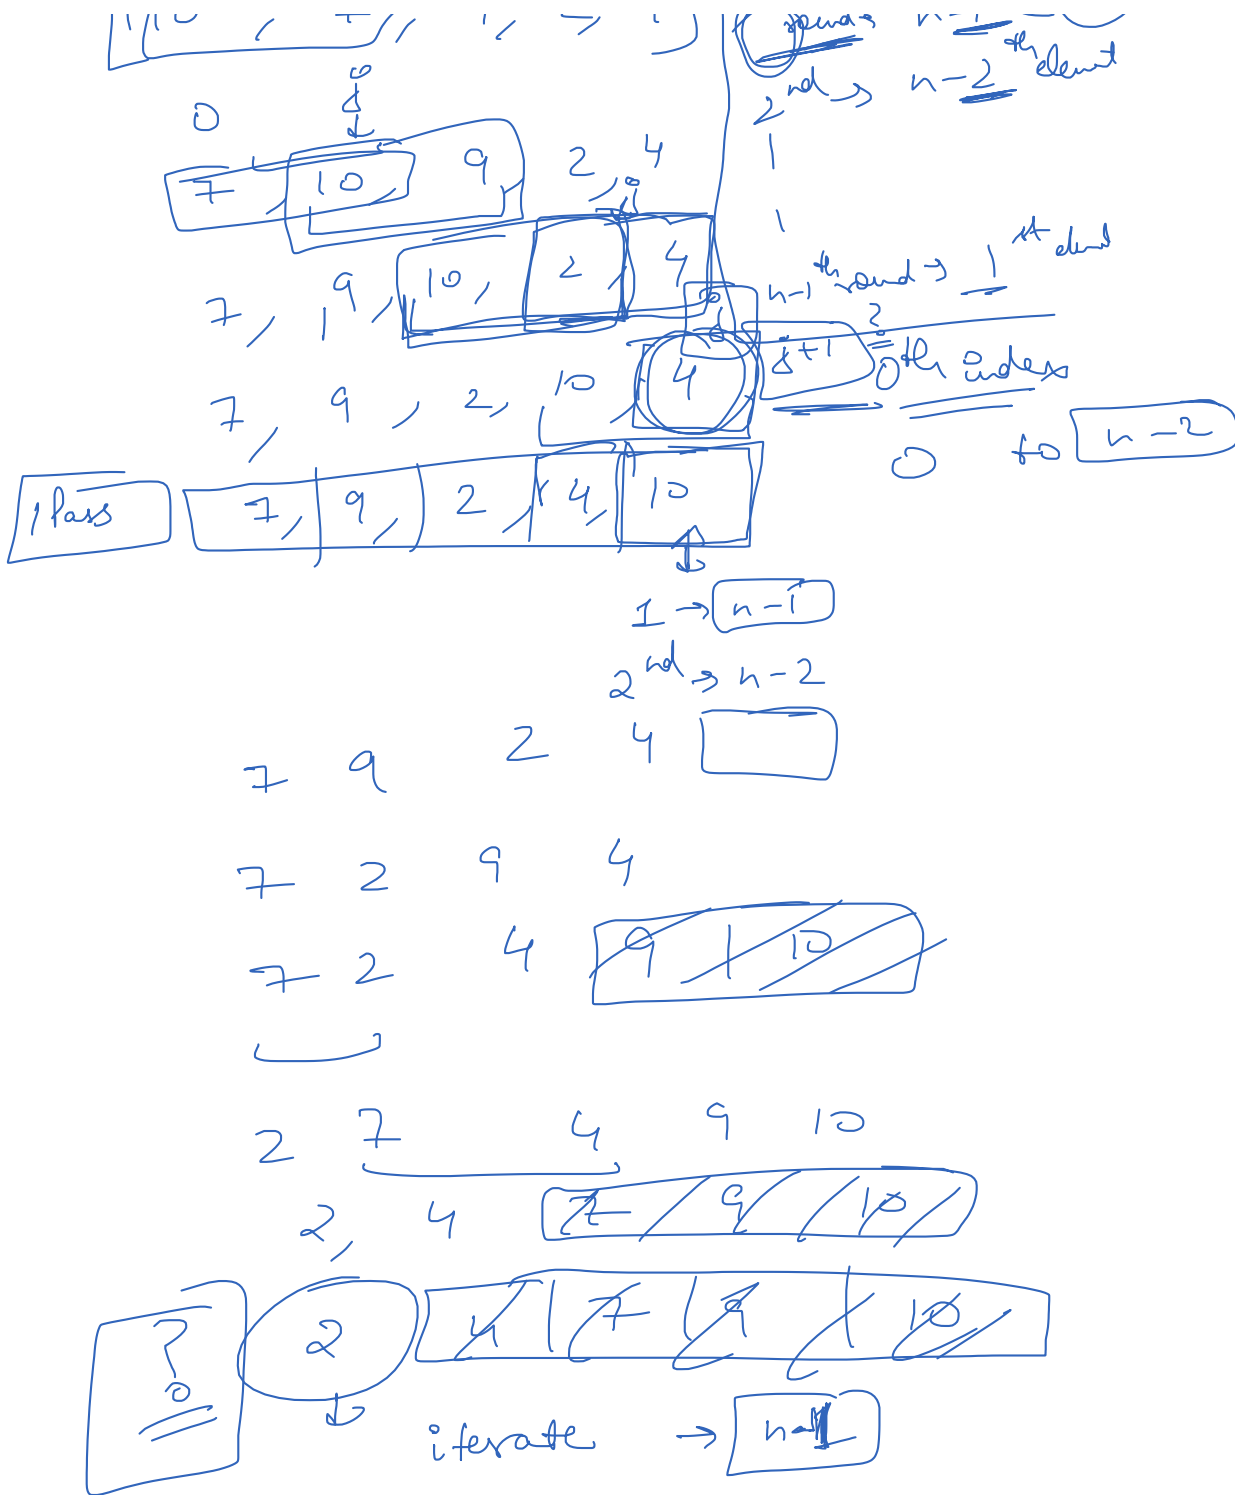 round → n-1
2nd → n-2 th element
0
7, 10, 9 2, 4
7, 9, 10, 2, 4
n-1 th round → 1 st elemt
7, 9, 2, 10, 4 j+1 0th index
0 to n-2
1 Pass 7, 9, 2, 4, 10
1 → n-1
2nd → n-2
7 9 2 4
7 2 9 4
7 2 4 9 10
2 7 4 9 10
2, 4 7 9 10
? 2 4 7 9 10
iterate → n-1